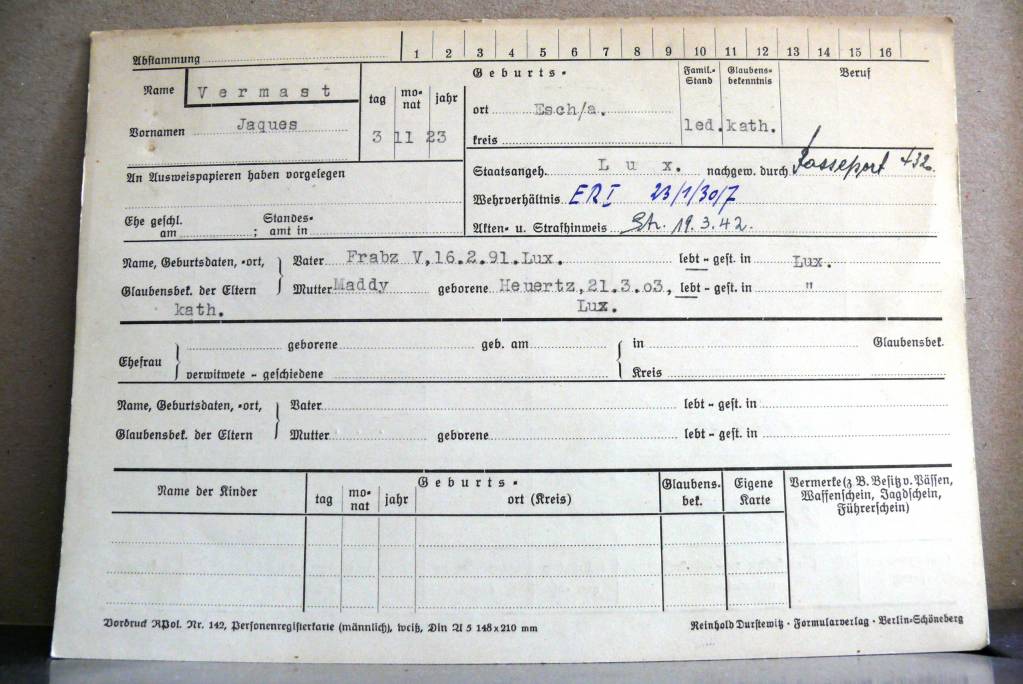 Abstammung 1 2 3 4 5 6 7 8 9 10 11 12 13 14 15 16
Name Vermast
Vornamen Jaques
tag monat jahr
3 11 23
Geburts-
ort Esch/a.
kreis
Famil.-Stand
led.
Glaubensbekenntnis
kath.
Beruf
An Ausweispapieren haben vorgelegen
Staatsangeh. Lux. nachgew. durch Passeport 432
Wehrverhältnis ER I 23/1/30/7
Ehe geschl. am ; Standesamt in
Akten- u. Strafhinweis Str. 19.3.42.
Name, Geburtsdaten, -ort, Vater Frabz V,16.2.91.Lux. lebt - gest. in Lux.
Glaubensbek. der Eltern Mutter Maddy geborene Heuertz,21.3.03, lebt - gest. in "
kath. Lux.
Ehefrau geborene geb. am in Glaubensbek.
verwitwete - geschiedene Kreis
Name, Geburtsdaten, -ort, Vater lebt - gest. in
Glaubensbek. der Eltern Mutter geborene lebt - gest. in
Name der Kinder
Geburts-
tag monat jahr ort (Kreis)
Glaubensbek.
Eigene Karte
Vermerke (z B. Besitz v. Pässen,
Waffenschein, Jagdschein,
Führerschein)
Vordruck RPol. Nr. 142, Personenregisterkarte (männlich), weiß, Din A 5 148x210 mm
Reinhold Durstewitz · Formularverlag · Berlin-Schöneberg